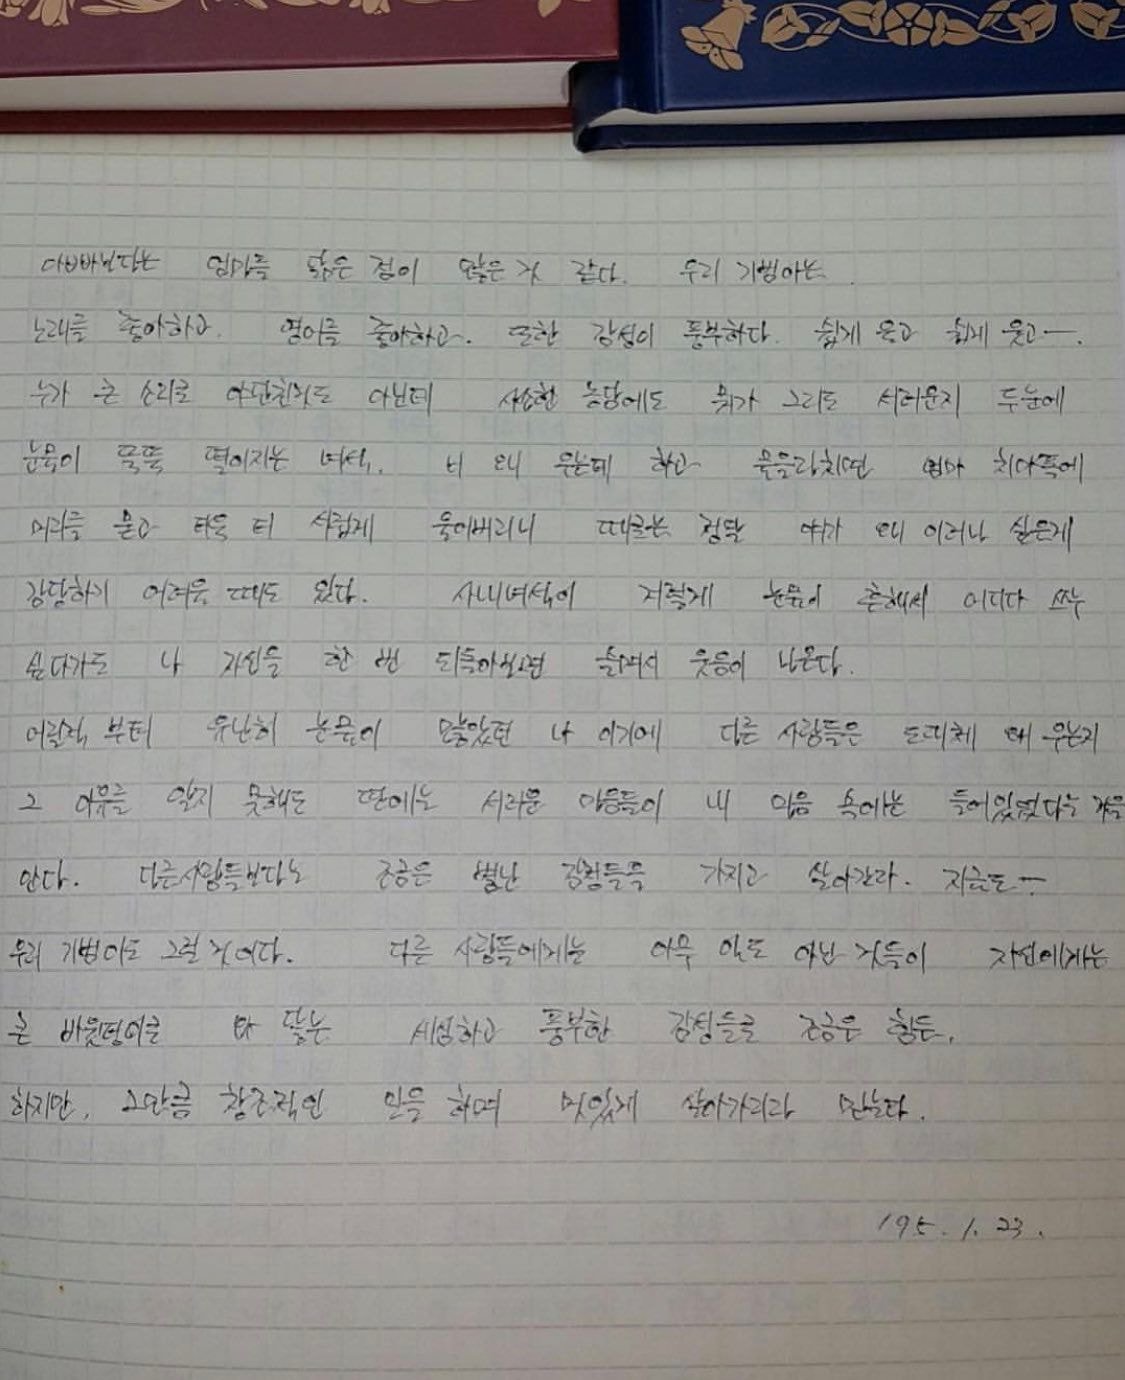 아빠보다는 엄마를 닮은 점이 많은 것 같다. 우리 기범이는
노래를 좋아하고. 영어를 좋아하고. 또한 감성이 풍부하다. 쉽게 울고 쉽게 웃고ㅡ.
누가 큰 소리로 야단친것도 아닌데 사소한 농담에도 뭐가 그리도 서러운지 두눈에
눈물이 뚝뚝 떨어지는 녀석. 너 왜 우는데 하고 윽을라치면 엄마 치마폭에
머리를 묻고 더욱 더 서럽게 울어버리니 때로는 정말 얘가 왜 이러나 싶은게
감당하기 어려울 때도 있다. 사내녀석이 저렇게 눈물이 흔해서 어디다 쓰누
싶다가도 나 자신을 한 번 되돌아보면 슬며시 웃음이 나온다.
어릴적 부터 유난히 눈물이 많았던 나 이기에 다른 사람들은 도대체 왜 우는지
그 이유를 알지 못해도 딴에는 서러운 마음들이 내 마음 속에는 들어있었다는 것을
안다. 다른사람들보다는 조금은 별난 감정들을 가지고 살아간다. 지금도ㅡ
우리 기범이도 그럴 것이다. 다른 사람들에게는 아무 일도 아닌 것들이 자신에게는
큰 바윗덩이로 와 닿는 세심하고 풍부한 감성들로 조금은 힘든.
하지만, 그만큼 창조적인 일을 하며 멋있게 살아가리라 믿는다.
195. 1. 23.